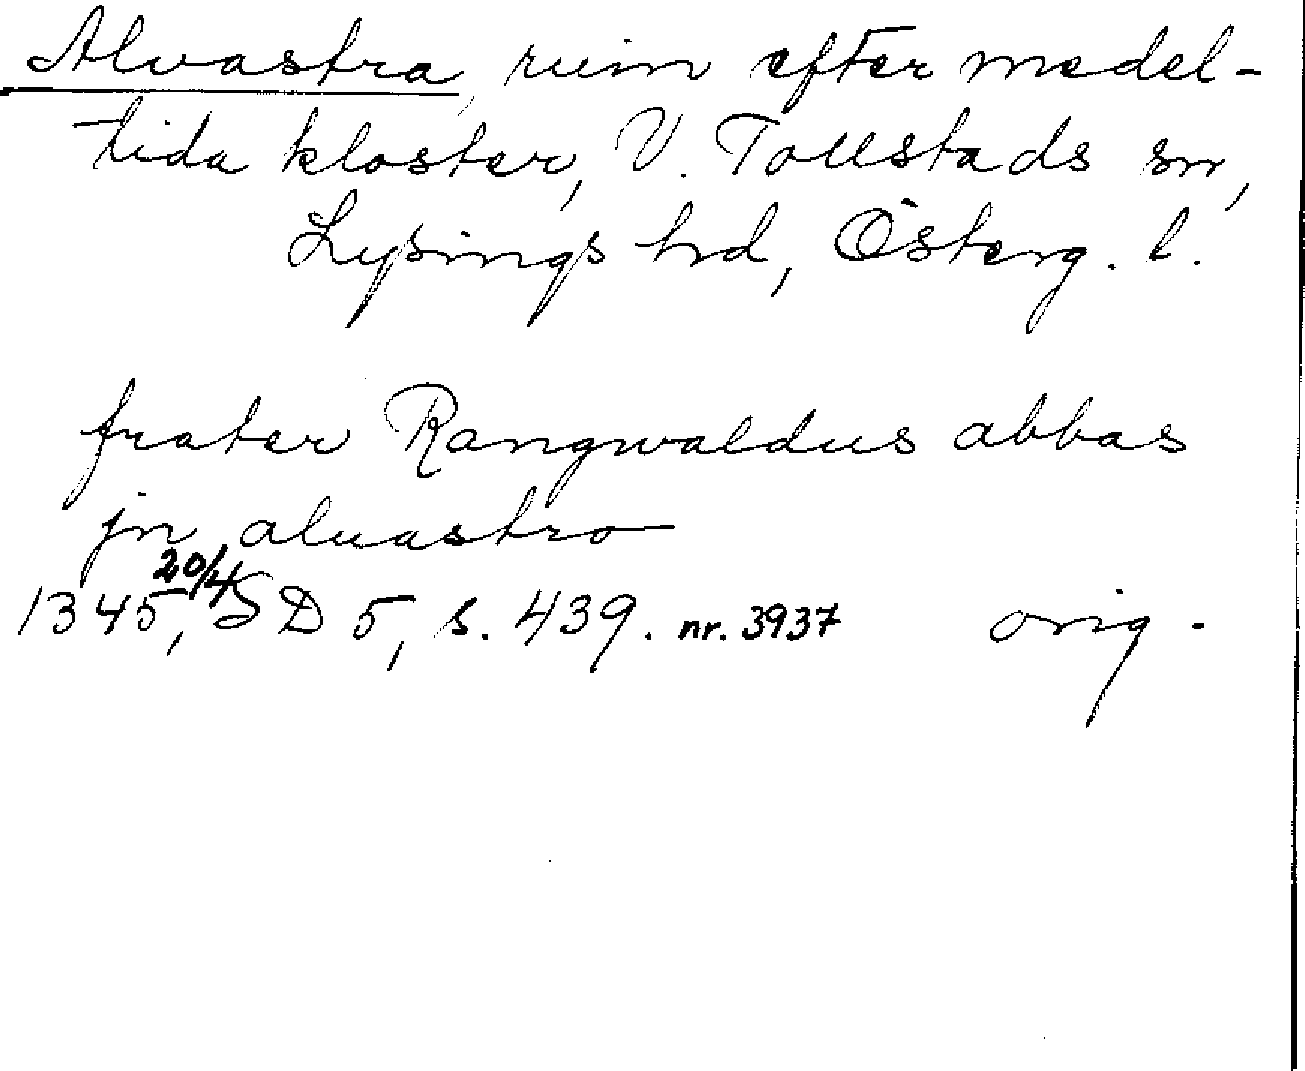 Alvastra, ruin efter medel-
tida kloster, V. Tollstads sn,
Lysings hd, Österg. l.
frater Rangwaldus abbas
jn aluastro
1345 20/4, SD 5, s. 439. nr. 3937 orig.